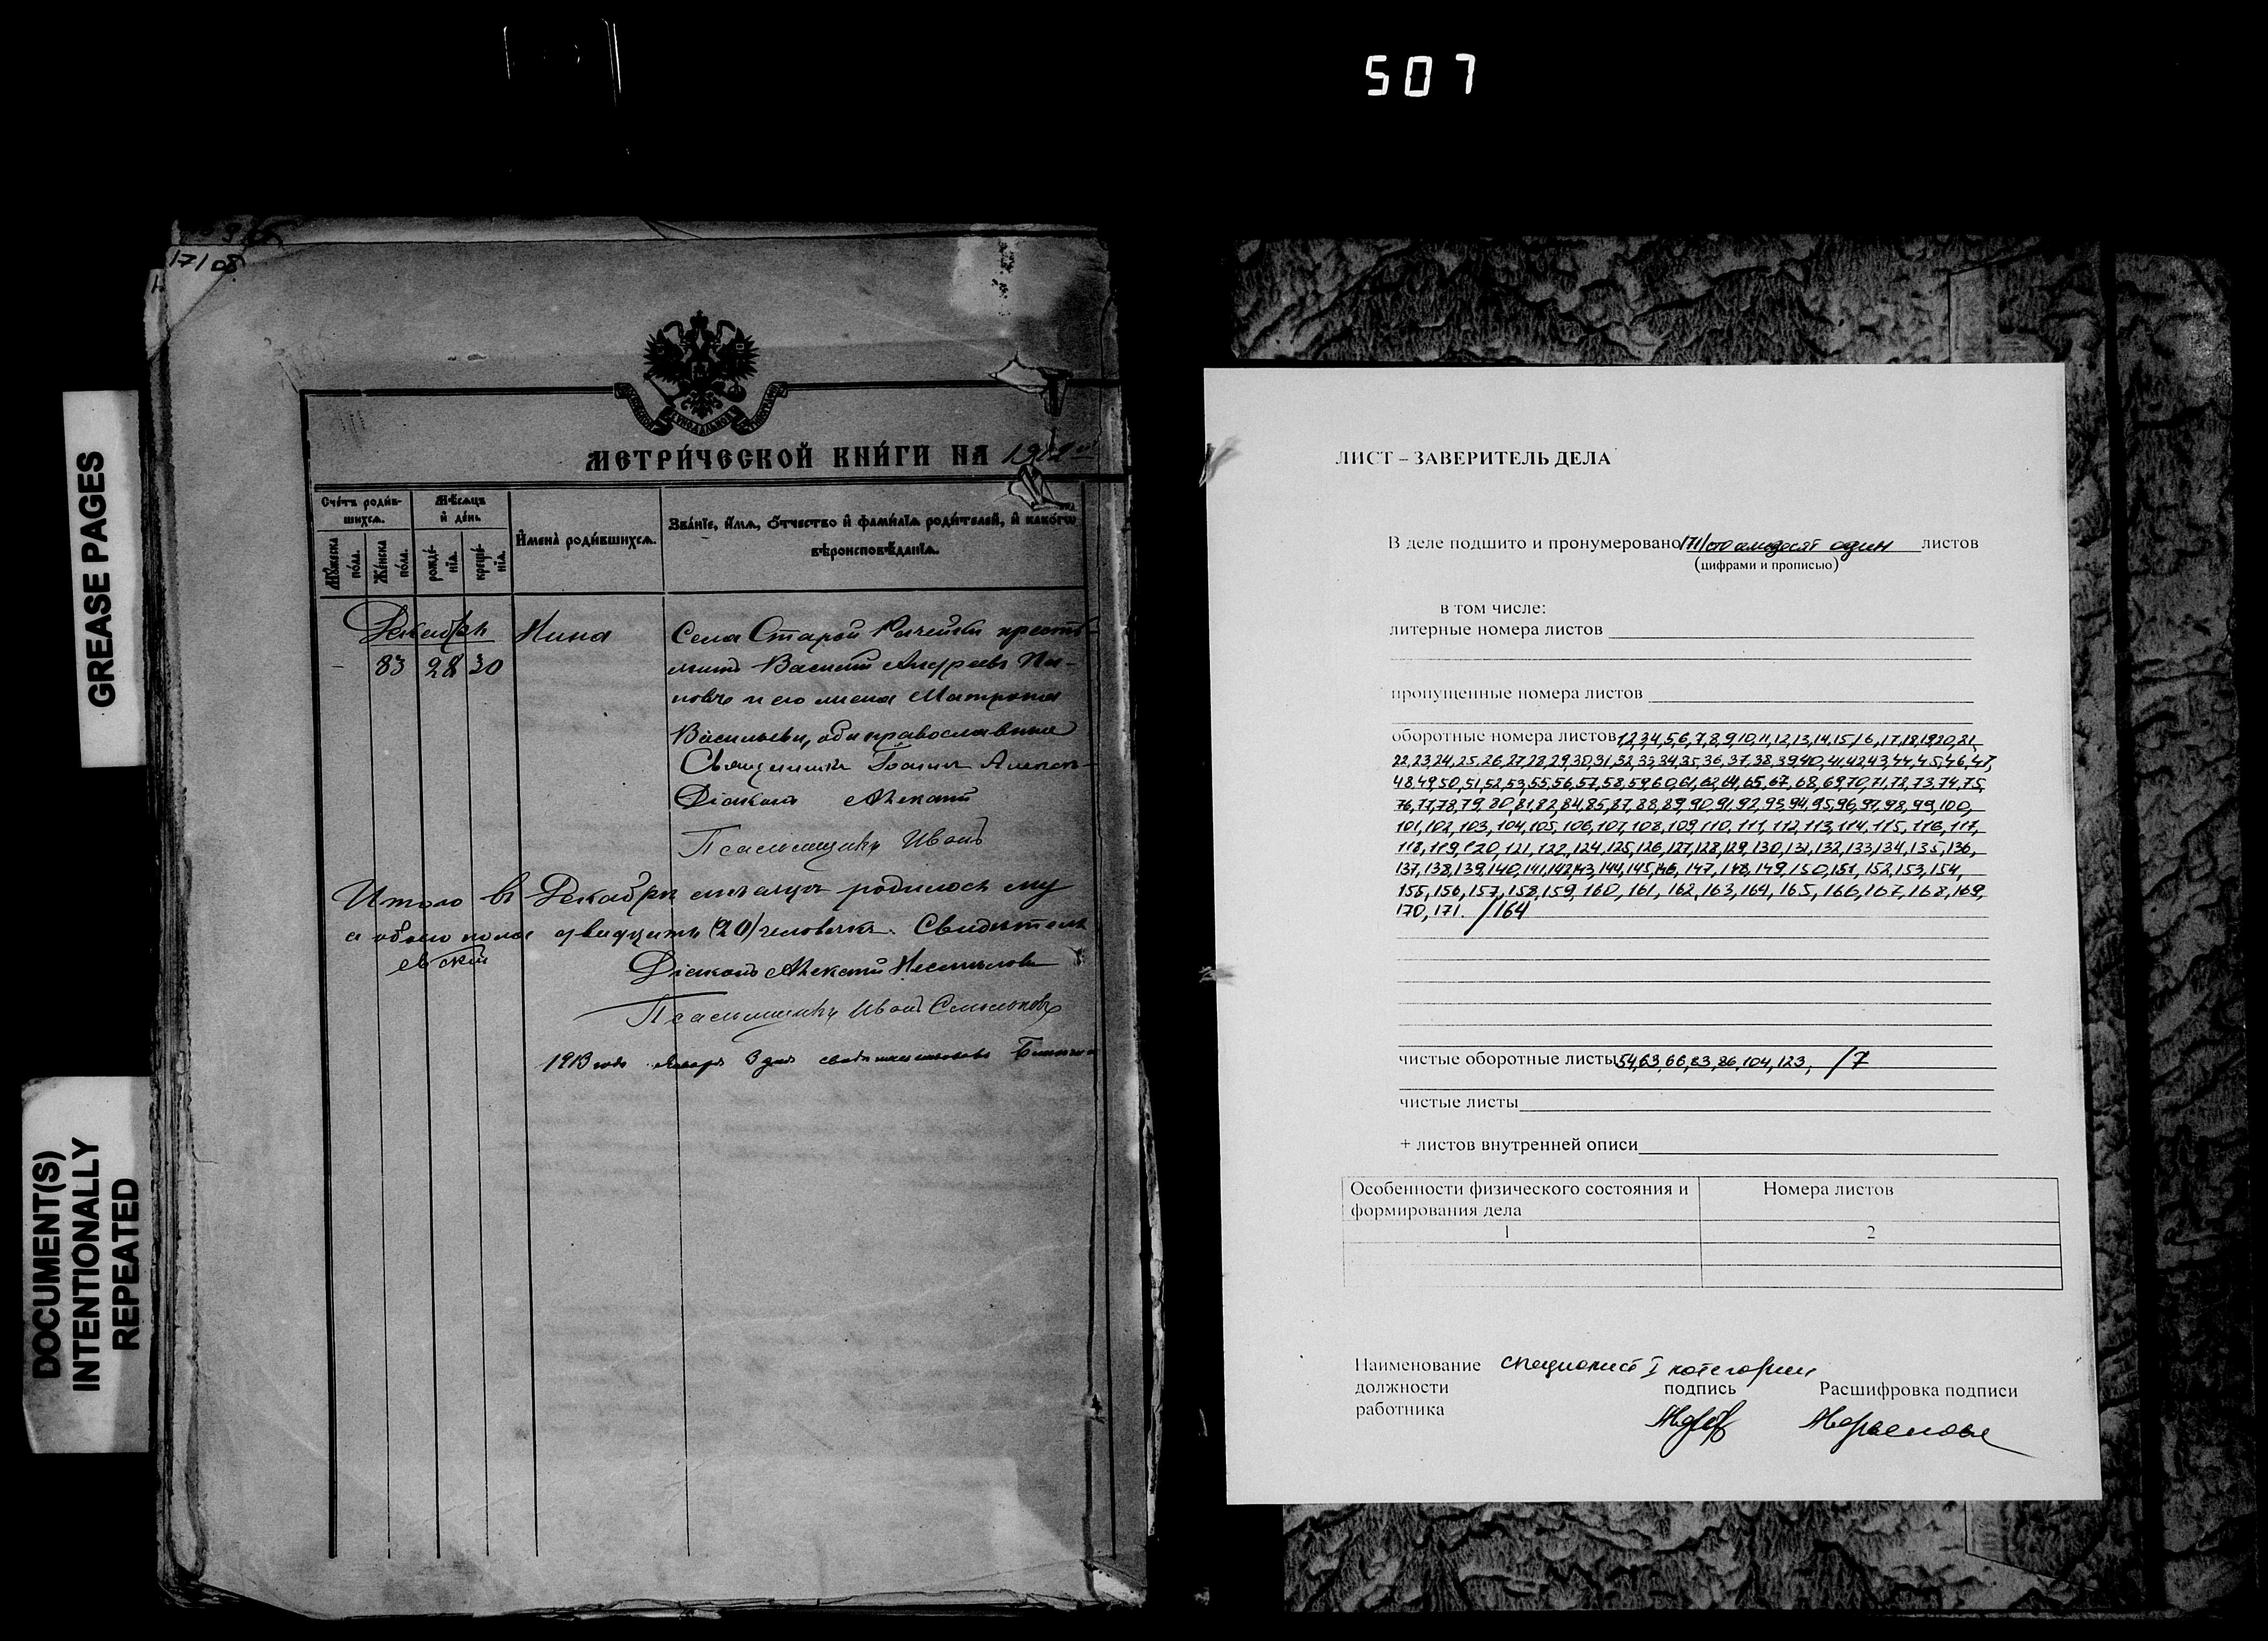 507
GREASE PAGES
DOCUMENT(S)
INTENTIONALLY
REPEATED
171 об
МЕТРИ́ЧЕСКОЙ КНИ́ГИ НА 1912
Сче́тъ роди́в-
шихсѧ.
Мѣ́сѧцъ
и҆ де́нь
И҆мена̀ роди́вшихсѧ.
Зва́нїе, и҆́мѧ, ѻ҆́тчество и҆ фами́лїѧ роди́телей, и҆ како́гѡ
вѣроисповѣ́данїѧ.
Мꙋ́жеска
по́ла.
Же́нска
по́ла.
рожде́-
нїѧ.
креще́-
нїѧ.
Декабрь
- 83 28 30
Нина
Села Старой
Василий Андреевъ
и его жена Матрона
Васильева, оба православные
Священникъ Іоаннъ
Діаконъ
Псаломщикъ Иванъ
Итого въ Декабрѣ мѣсяцѣ родилось
обоего пола двадцать (20) человѣкъ.
Діаконъ
Псаломщикъ Иванъ
1913 года Января 3 дня
ЛИСТ – ЗАВЕРИТЕЛЬ ДЕЛА
В деле подшито и пронумеровано /171/ сто семьдесят один листов
(цифрами и прописью)
в том числе:
литерные номера листов
пропущенные номера листов
оборотные номера листов 1,2,3,4,5,6,7,8,9,10,11,12,13,14,15,16,17,18,19,20,21,
22,23,24,25,26,27,28,29,30,31,32,33,34,35,36,37,38,39,40,41,42,43,44,45,46,47,
48,49,50,51,52,53,55,56,57,58,59,60,61,62,64,65,67,68,69,70,71,72,73,74,75,
76,77,78,79,80,81,82,84,85,87,88,89,90,91,92,93,94,95,96,97,98,99,100,
101,102,103,104,105,106,107,108,109,110,111,112,113,114,115,116,117,
118,119,120,121,122,124,125,126,127,128,129,130,131,132,133,134,135,136,
137,138,139,140,141,142,143,144,145,146,147,148,149,150,151,152,153,154,
155,156,157,158,159,160,161,162,163,164,165,166,167,168,169,
170,171. /164
чистые оборотные листы 54,63,66,83,86,104,123, /7
чистые листы
+ листов внутренней описи
Особенности физического состояния и
формирования дела
Номера листов
1
2
Наименование специалист I категории
должности подпись Расшифровка подписи
работника